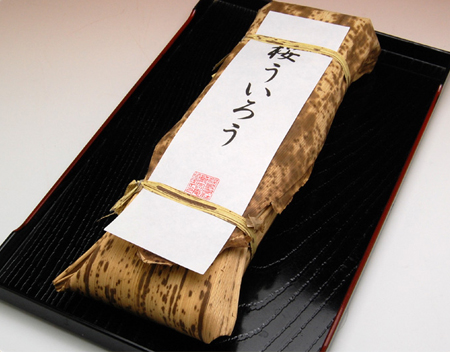 桜ういろう